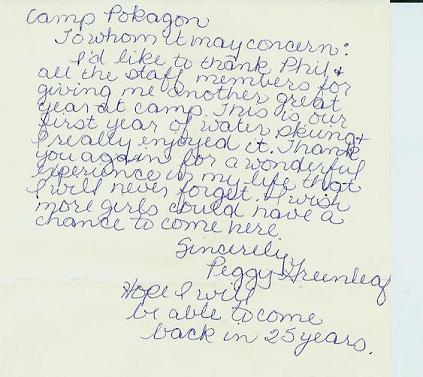 Camp Pokagon
To whom it may concern:
I'd like to thank Phil &
all the staff members for
giving me another great
year at camp. This is our
first year of water skiing &
I really enjoyed it. Thank
you again for a wonderful
experience in my life that
I will never forget. I wish
more girls could have a
chance to come here.
Sincerely,
Peggy Greenleaf
Hope I will
be able to come
back in 25 years.